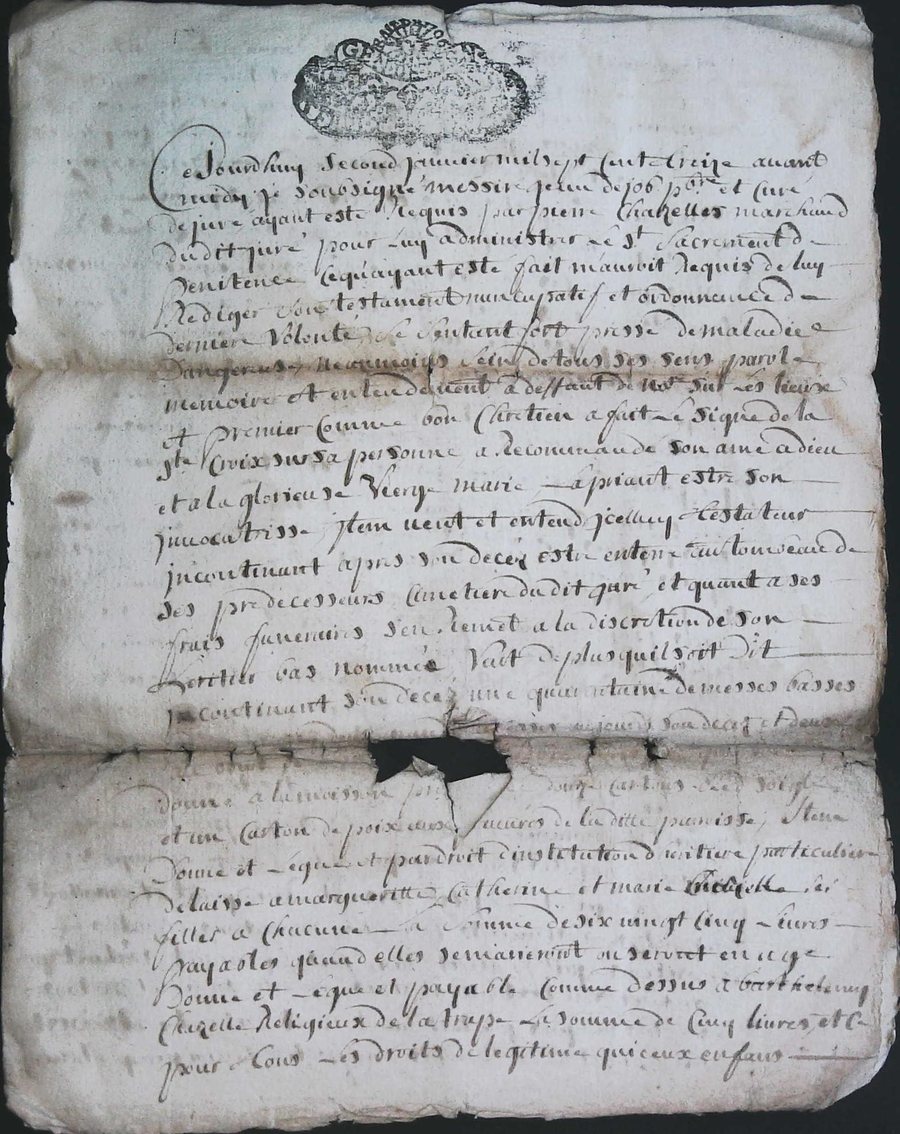 Ce Jourdhuy second janvier mil sept cent treize avant
midy je soubsigné messire jean de job pbre et curé
de juré ayant esté Requis par pierre Chazelles marchand
du dit juré pour luy administrer le st Sacrement de
penitence Ce quayant esté fait mauroit Requis de luy
Rediger son testament nuncupatif et ordonnance de
derniere volonté, se sentant fort pressé de maladie
dangereuse, neanmoins sein de tous ses sens parole
memoire et entendement a deffaut de nore sur les lieux
et premier Comme bon Chretien a fait le signe de la
ste Croix sur sa personne, a Recommandé son ame a dieu
et a la glorieuse vierge marie la priant estre son
invocatrisse, Item veut et entend jcelluy testateur
jncontinant apres son decez estre enterré au tombeau de
ses predecesseurs Cimetiere du dit juré, et quant a ses
frais funeraires sen Remet a la discretion de son
heritier bas nommée Vaut de plus quil soit dit
jncontinant son decez une quarantaine de messes basses
son decez et
donne a la moisson douze Cartons bled soigle
et un Carton de poix aux Curés de la ditte paroisse, Item
donne et Legue et par droit dinstitution dheritiere particuliere
delaisse a marguerite, Catherine et marie Chazelle ses
filles a Chacune la somme de six vingt Cinq Livres
payables quand elles se marieront ou seront en age
donne et Legue et payable Comme dessus a barthelemy
Chazelle Religieux de la trape la somme de Cinq livres, et Ce
pour tous les droits de legitime que iceux enfans